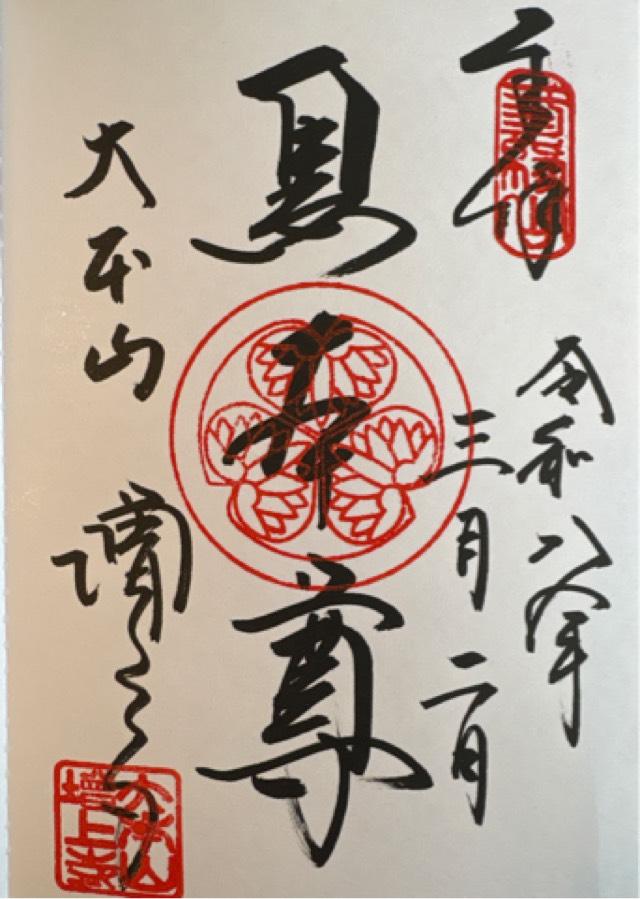 奉拝
令和八年
三月二日
黒本尊
大本山 増上寺
大本山
増上寺